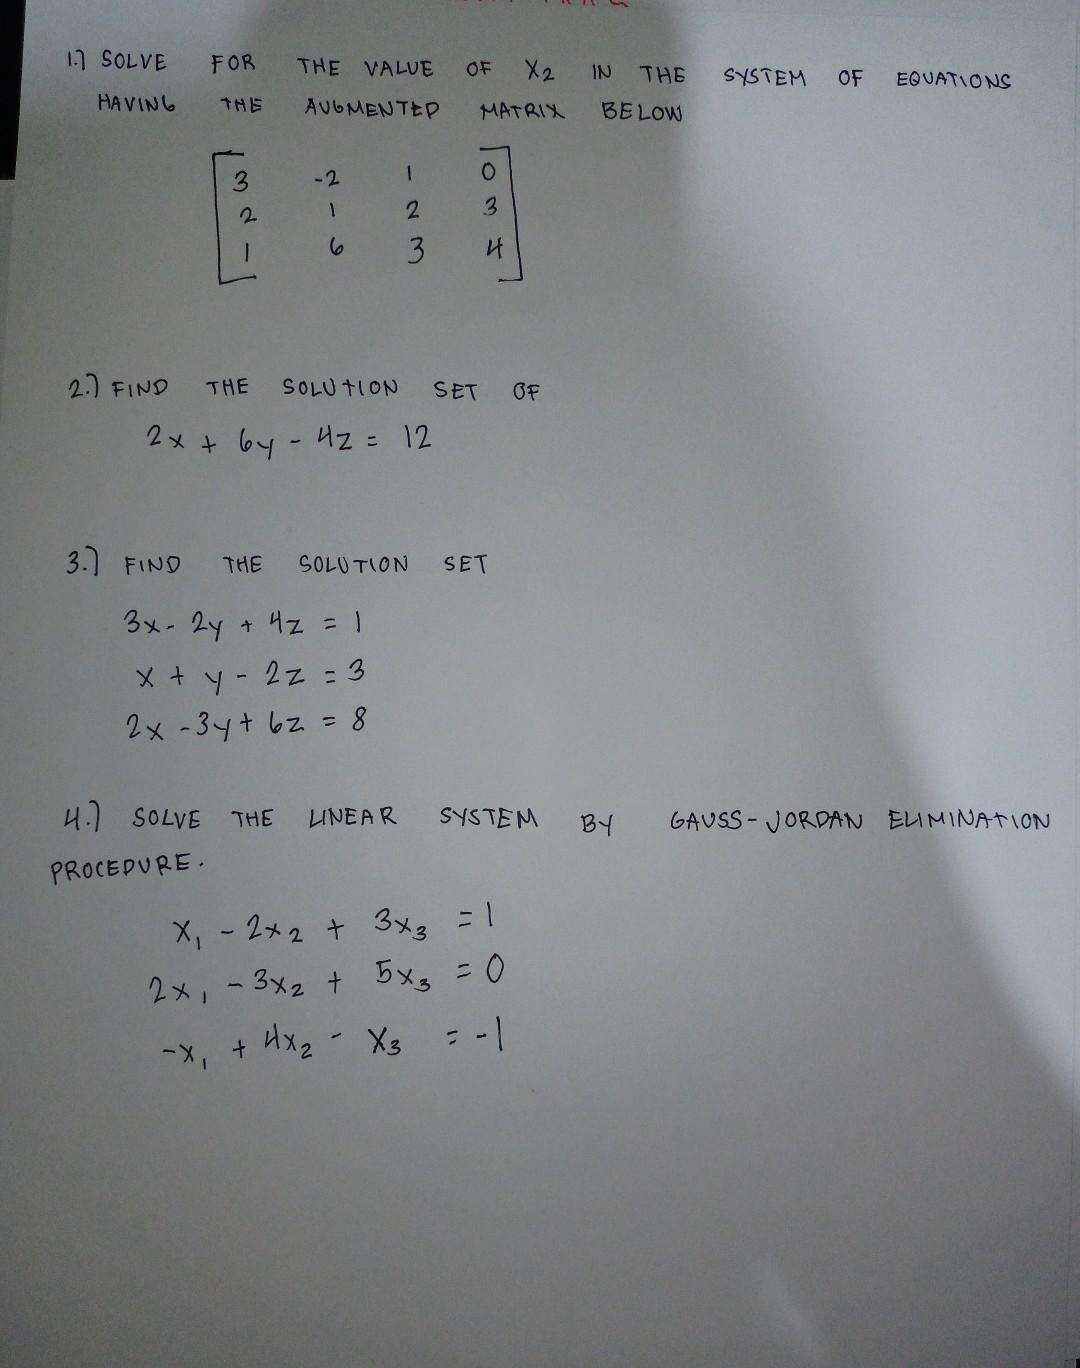 1.) SOLVE FOR THE VALUE OF X2 IN THE SYSTEM OF EQUATIONS
HAVING THE AUGMENTED MATRIX BELOW
3 -2 1 0
2 1 2 3
1 6 3 4
2.) FIND THE SOLUTION SET OF
2x + 6y - 4z = 12
3.) FIND THE SOLUTION SET
3x - 2y + 4z = 1
x + y - 2z = 3
2x - 3y + 6z = 8
4.) SOLVE THE LINEAR SYSTEM BY GAUSS-JORDAN ELIMINATION
PROCEDURE.
x₁ - 2x₂ + 3x₃ = 1
2x₁ - 3x₂ + 5x₃ = 0
-x₁ + 4x₂ - x₃ = -1